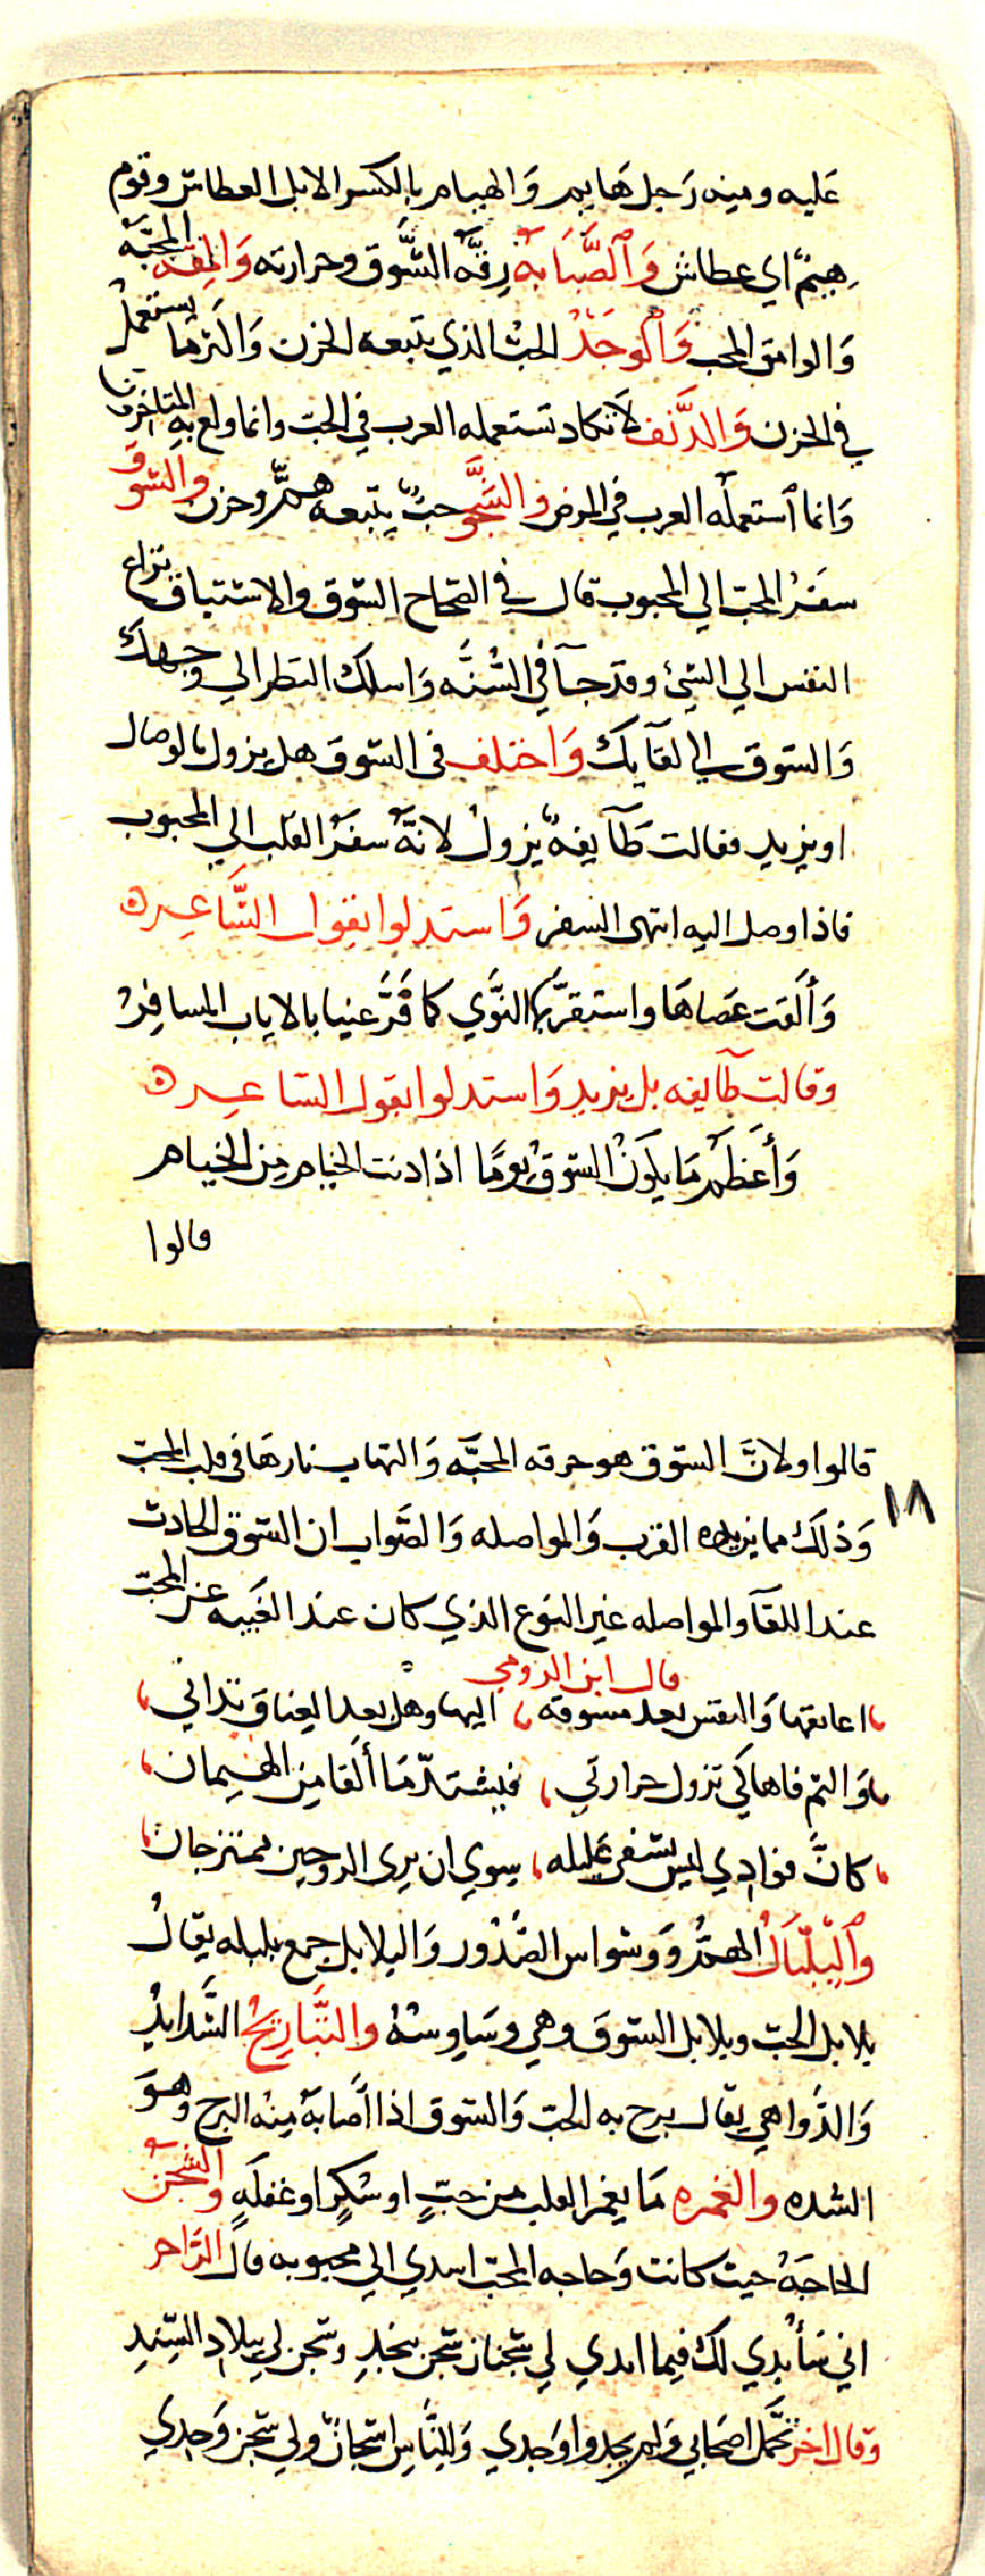 عليه ومنه رَجل هَايم وَالهيام بالكسر الابل العطاش وقوم
هيمٌ اي عطاش وَالصَّبَابَة رقَّة الشَّوق وحرارته وَالمِقه المحبّه
وَالوامق المحب وَالوَجْدُ الحبّ الذي يتبعه الحزن وَاكثر ما يستعمل
في الحزن وَالدَّنَف لا تكاد تستعمله العرب في الحبّ وانما ولع به المتاخرون
وَانما استعمله العرب في المرض والشَّجَو حبٌّ يتبعه همّ وحزن والشوق
سفَرُ المحبّ الي المحبوب قال في الصحاح الشوق والاشتياق نزاع
النفس الي الشيئ وقد جآ في السُّنَّه وَاسلك النظر الي وجهك
وَالشوق الي لقآيك وَاختلف في الشوق هل يزول بالوصال
او يزيد فقالت طَآيفهٌ يزولُ لانّهُ سفَرُ القلب الي المحبوب
فاذا وصل اليه انتهى السفر وَاستدلوا بقول الشَّاعر ه
وَألقت عَصاهَا واستقرّ بها النَّوَي كما قَرَّ عينا بالاياب المسافِرُ
وقالت طآيفه بل يزيد وَاستدلوا بقول الشاعر ه
وَأعظم مَا يكونُ الشوقُ يومًا اذا دنت الخيام مِن الخيام
قالوا
قالوا ولانَّ الشوق هو حرقه المحبَّه وَالتهاب نارهَا في قلب المحبّ
١٨
وَذلكَ مما يزيده القرب وَالمواصله وَالصَّواب ان الشوق الحادث
عند اللقآ والمواصله غير النوع الذي كان عند الغَيبه عن المحبّ
قال ابن الرومي
اعانقها وَالنفس بعد مشوقه اليها وهل بعد العِناق تداني
وَالثم فاها كي تزول حرارتي فيشتدّ مَا ألقا مِن الهيمان
كانَّ فوادي ليس يشفي غليله سِوي ان يرى الروحين يمتزجان
وَالبِلبَالُ الهمُّ وَوسواس الصُّدُور وَالبلابل جمع بلبله يقالُ
بلابل الحبّ وبلابل الشوق وهي وسَاوِسُهُ والتَّبَارِيحُ الشَّدايدُ
وَالدَّواهي يقال برح به الحبّ وَالشوق اذا أصَابهُ مِنهُ البرح وهوَ
الشده والغمره مَا يغمر القلب من حبّ او سُكرٍ او غفلَهٍ والشجن
الحاجَهُ حيث كانت وَحاجه المحبّ اشدي الي محبوبه قال الرَّاجز
اني سَأبدي لك فيما ابدي لي شجنان شجن بنجدِ وشجن لي ببلاد السِّندِ
وقال اخر تحَمَّل اصحَابي وَلم يجدوا وَجدي وَللنَّاسِ اشجانٌ ولي شجن وَحدِي